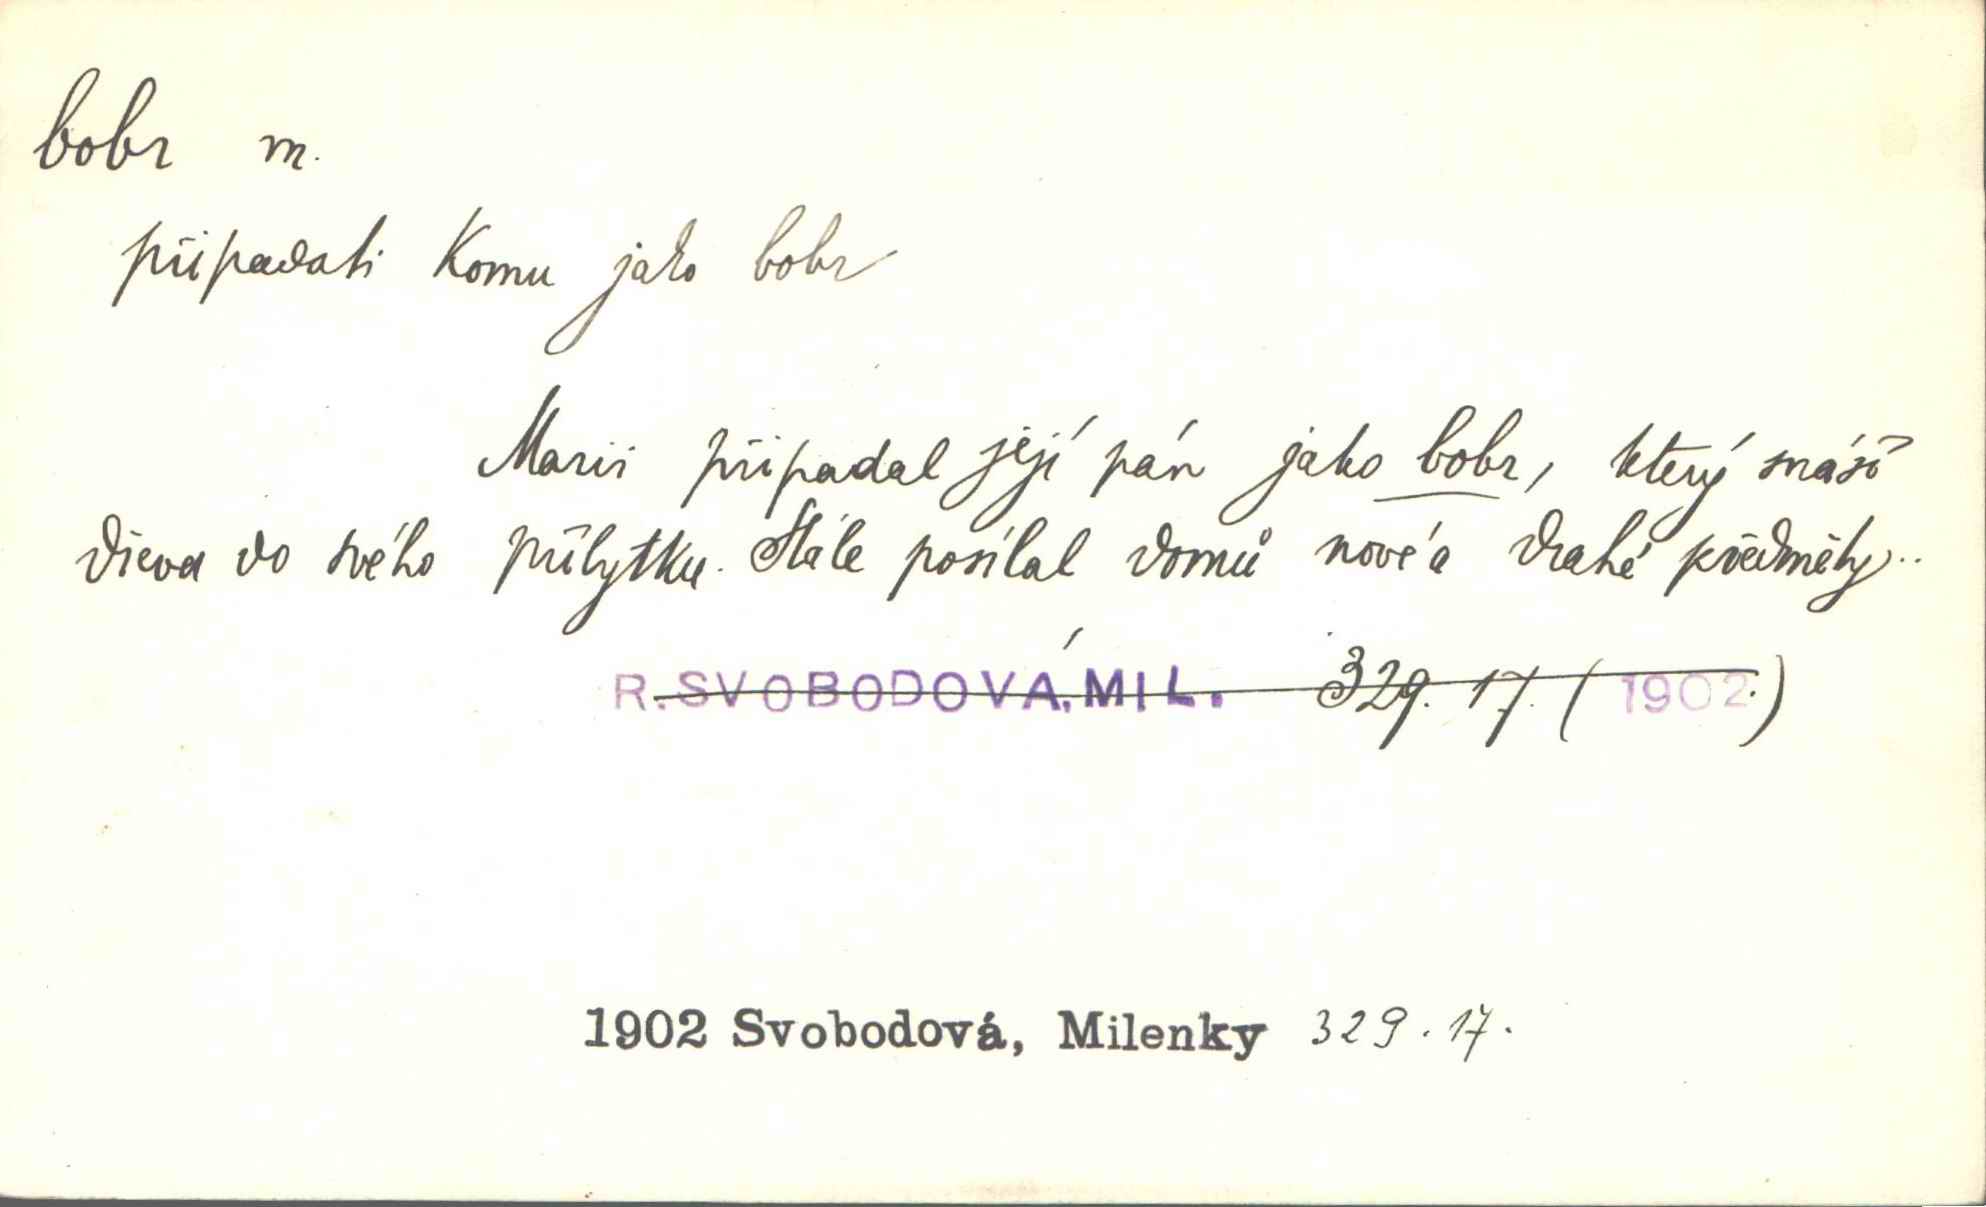 bobr m.
připadati komu jako bobr
Marii připadal její pán jako bobr, který snáší
dřeva do svého příbytku. Stále posílal domů nové a drahé předměty..
R. SVOBODOVÁ, MIL. 329. 17. (1902.)
1902 Svobodová, Milenky 329. 17.